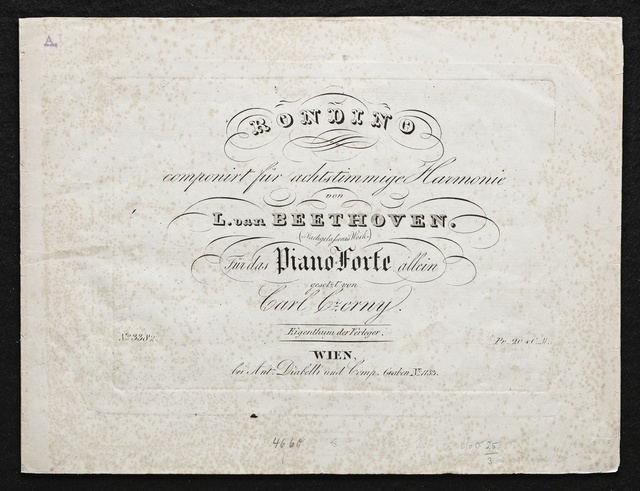 A
RONDINO
componirt für achtstimmige Harmonie
von
L. van BEETHOVEN.
(Nachgelassenes Werk.)
Für das Piano-Forte allein
gesetzt von
Carl Czerny.
Eigenthum der Verleger.
No. 3382. Pr.
WIEN,
bei Ant. Diabelli und Comp. Graben No. 1133.
4660
25
3